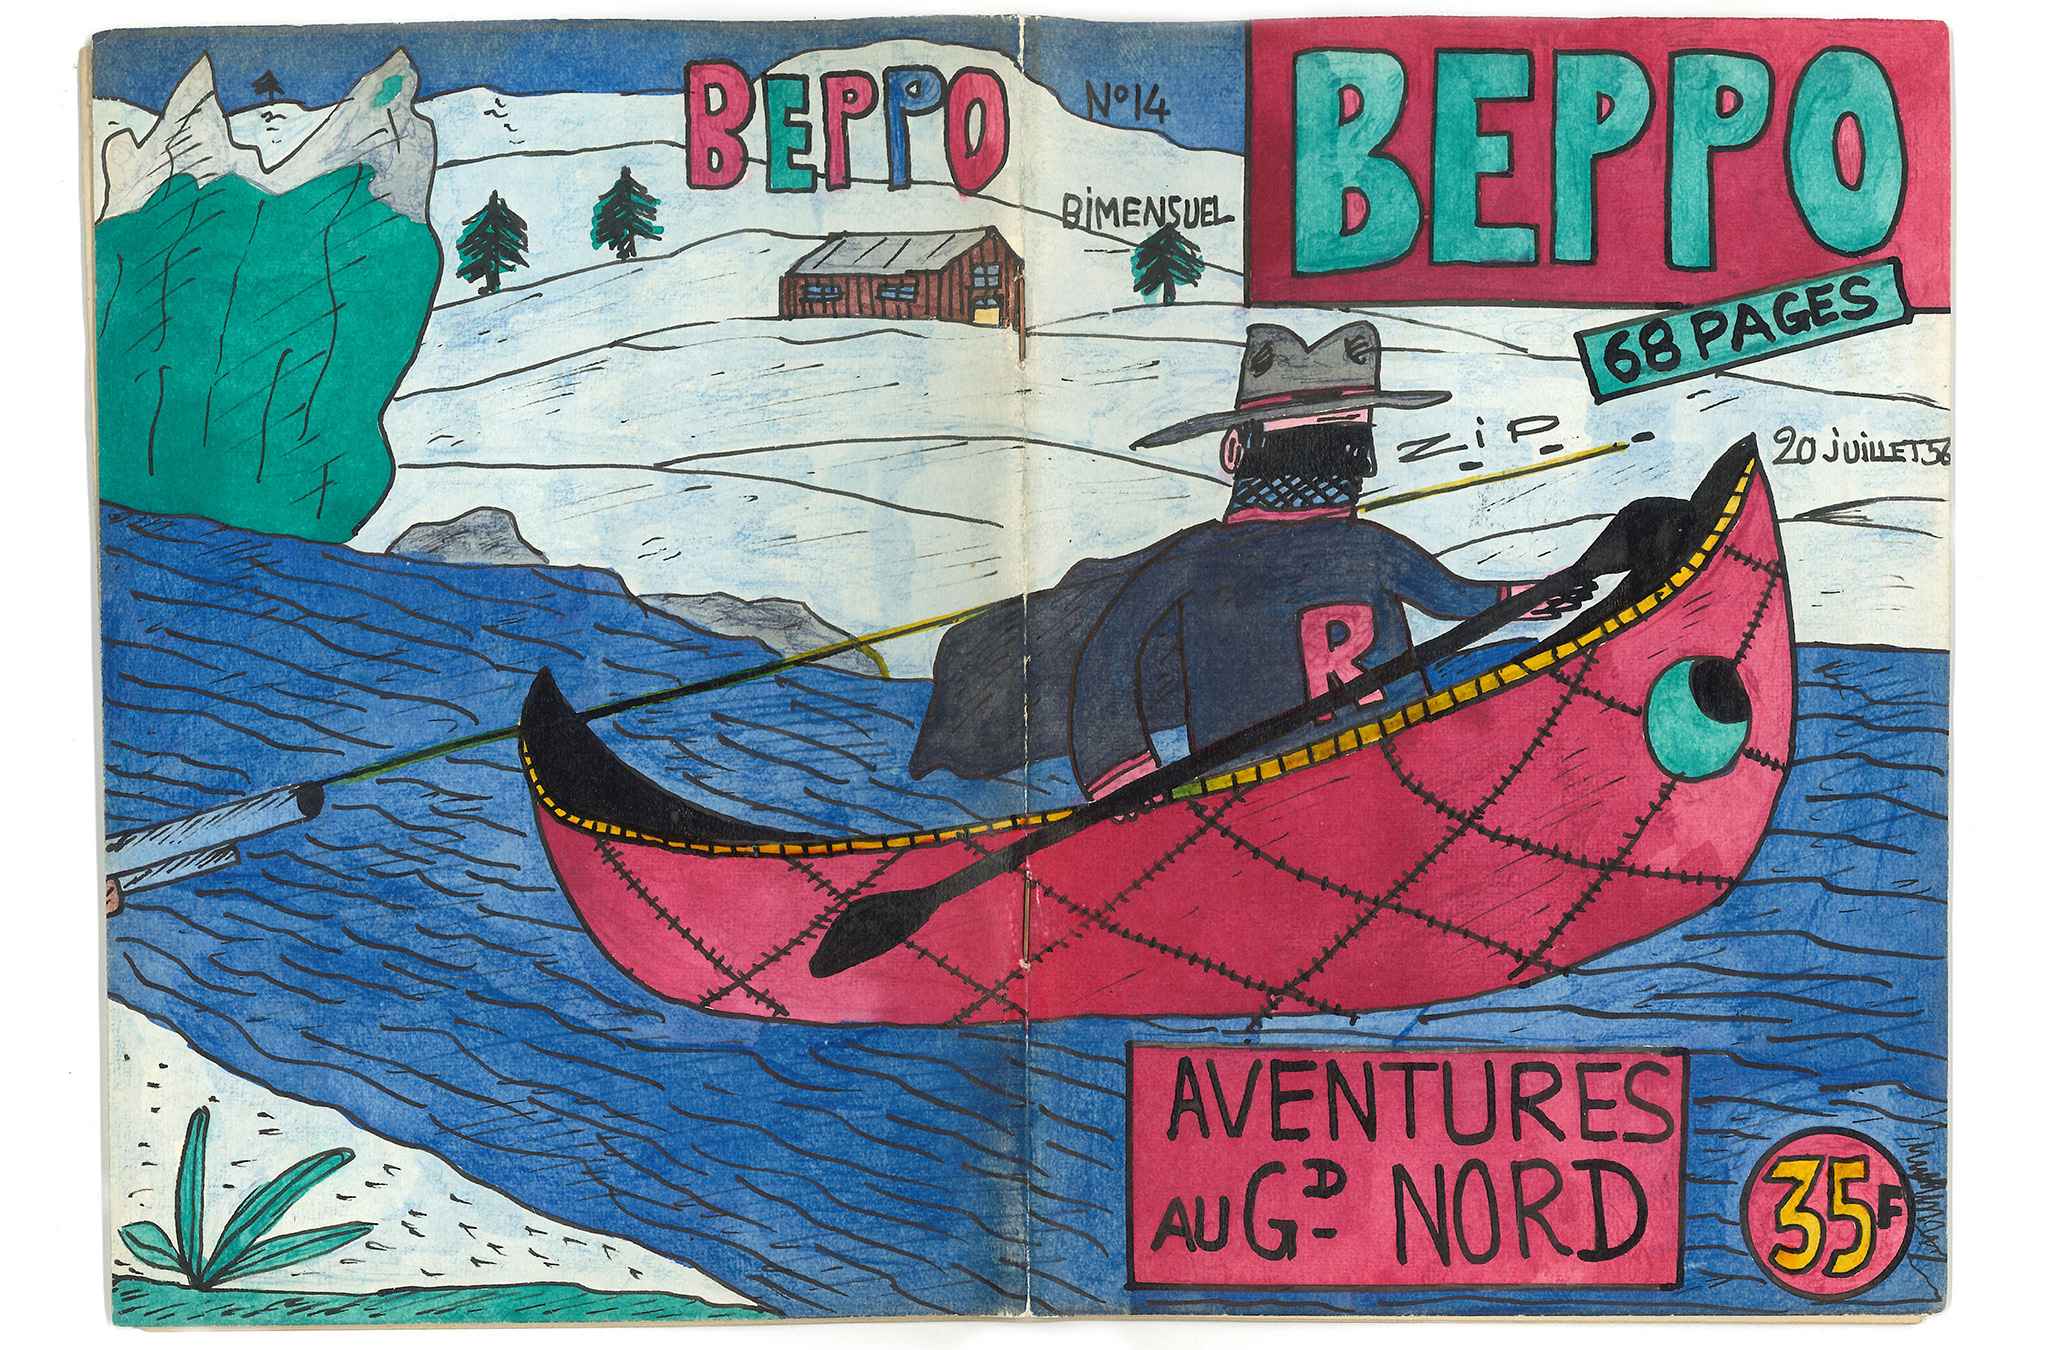 BEPPO
N° 14
BIMENSUEL
BEPPO
68 PAGES
ZiP
20 JUiLLET 56
R
AVENTURES
AU GD NORD
35F